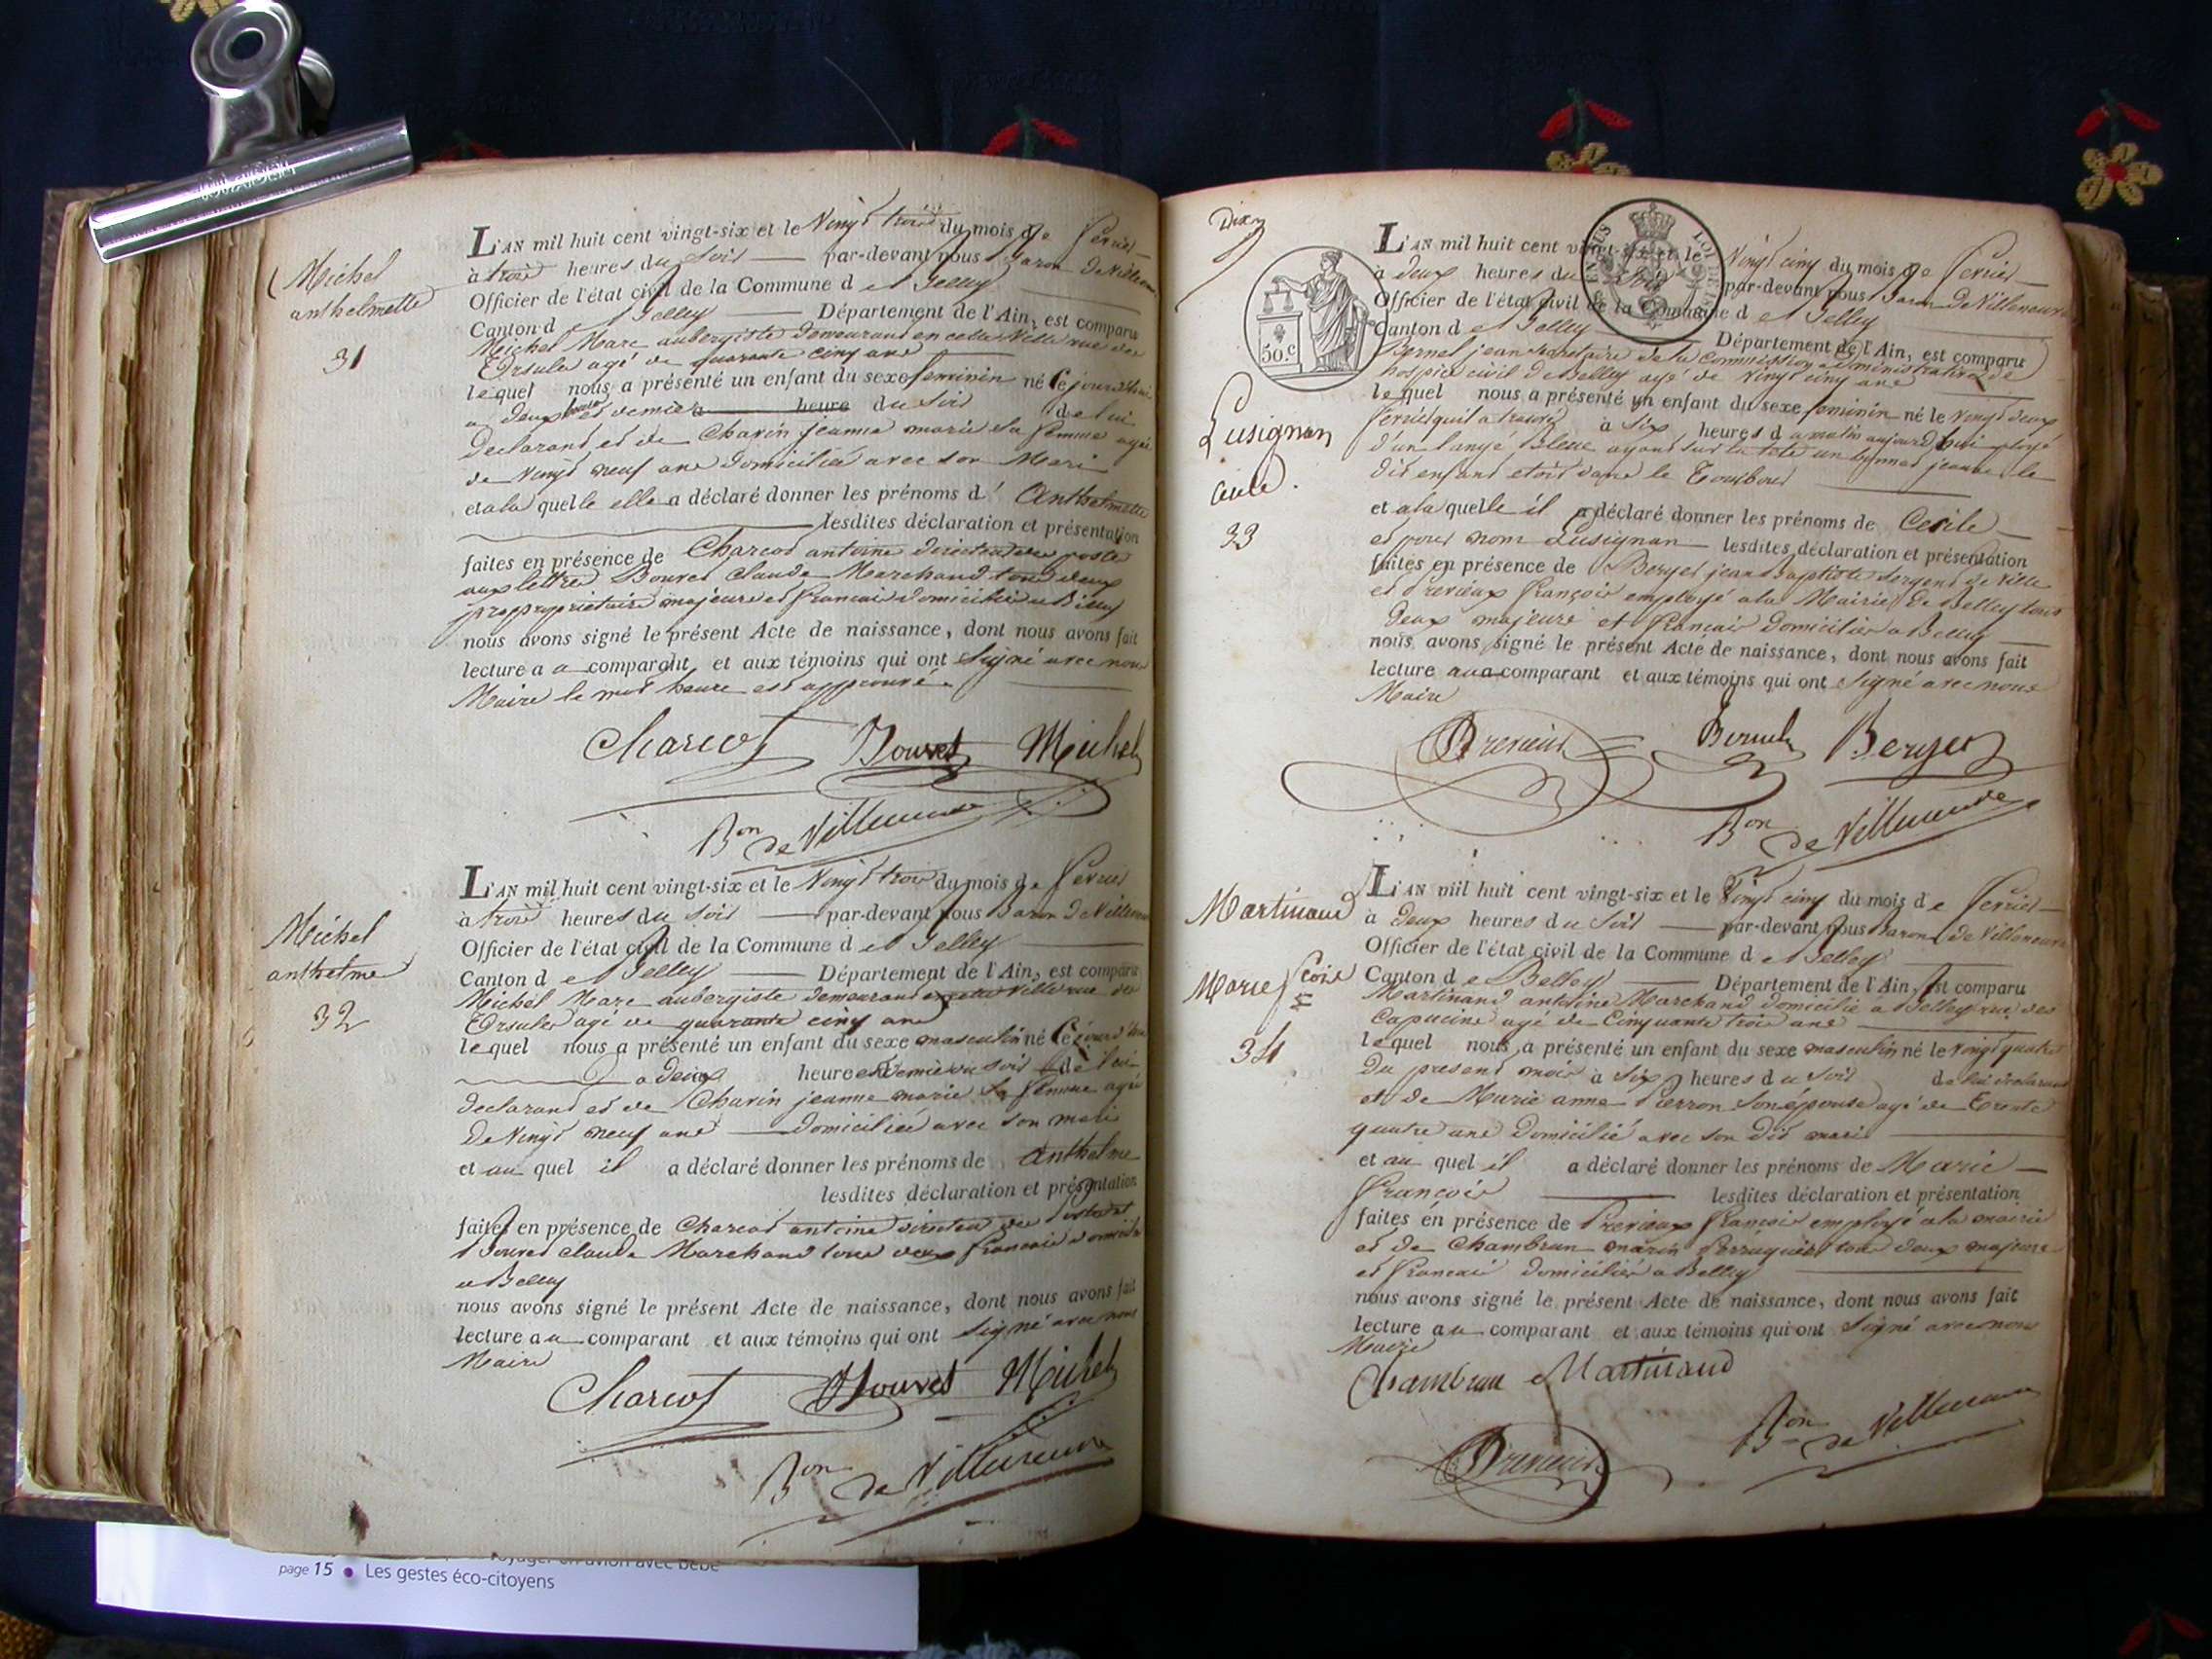 Michel
anthelmette
31
L'AN mil huit cent vingt-six et le Vingt trois du mois de fevrier
à trois heures du soir par-devant nous Baron de Villeneuve
Officier de l'état civil de la Commune de Belley
Canton de Belley Département de l'Ain, est comparu
Michel Marc aubergiste demeurant en cette Ville rue des
Ursules agé de quarante cinq ans
lequel nous a présenté un enfant du sexe feminin né Cejourd'hui
a deux heures et demie heure du soir de lui
Declarant et de Chavin jeanne marie sa femme agée
de Vingt neuf ans domiciliée avec son Mari
et a la quelle elle a déclaré donner les prénoms d' Anthelmette
lesdites déclaration et présentation
faites en présence de Charcot antoine directeur des postes
aux lettres Bouvet Claude Marchand tous deux
propropriétaire majeurs et francais domiciliés a Belley
nous avons signé le présent Acte de naissance, dont nous avons fait
lecture a u comparant et aux témoins qui ont signé avec nous
Maire le mot heure est approuvé.
Charcot Bouvet Michel
Bon de Villeneuve
Michel
anthelme
32
L'AN mil huit cent vingt-six et le Vingt trois du mois de fevrier
à trois heures du soir par-devant nous Baron de Villeneuve
Officier de l'état civil de la Commune de Belley
Canton de Belley Département de l'Ain, est comparu
Michel Marc aubergiste demeurant en cette Ville rue des
Ursules agé de quarante cinq ans
lequel nous a présenté un enfant du sexe masculin né Cejourd'hui
a deux heures et demie du soir de lui
declarant et de Chavin jeanne marie sa femme agée
De Vingt neuf ans domiciliée avec son mari
et au quel il a déclaré donner les prénoms de anthelme
lesdites déclaration et présentation
faites en présence de Charcot antoine directeur des postes et
Bouvet claude Marchand tous deux francais domiciliés
a Belley
nous avons signé le présent Acte de naissance, dont nous avons fait
lecture au comparant et aux témoins qui ont signé avec nous
Maire
Charcot Bouvet Michel
Bon de Villeneuve
page 15 • Les gestes éco-citoyens
Dix
50.c
Lusignan
Cecile.
33
L'AN mil huit cent vingt-six et le Vingt cinq du mois de fevrier
à deux heures du soir par-devant nous Baron de Villeneuve
Officier de l'état civil de la Commune de Belley
Canton de Belley Département de l'Ain, est comparu
Bernet jean secretaire de la Commission administrative de
hospice civil de Belley agé de Vingt cinq ans
lequel nous a présenté un enfant du sexe feminin né le vingt deux
fevrier quil a trouvé à six heures du matin aujourd'hui ployé
d'un lange Bleue ayant sur la tete un bonnet jeaune le
dit enfant etoit dans le Tour
et a la quelle il a déclaré donner les prénoms de Cecile
et pour nom Lusignan lesdites déclaration et présentation
faites en présence de Berget jean Baptiste sergent de Ville
et Previeux François employé a la Mairie de Belley tous
Deux majeurs et francais Domiciliés a Belley
nous avons signé le présent Acte de naissance, dont nous avons fait
lecture au comparant et aux témoins qui ont signé avec nous
Maire
Previeux Bernet Berget
Bon de Villeneuve
Martinand
Marie fcois
34
L'AN mil huit cent vingt-six et le Vingt cinq du mois de fevrier
à Deux heures du soir par-devant nous Baron de Villeneuve
Officier de l'état civil de la Commune de Belley
Canton de Belley Département de l'Ain, est comparu
Martinand antoine Marchand domicilié à Belley rue des
Capucins agé de Cinquante trois ans
lequel nous a présenté un enfant du sexe masculin né le vingt quatre
Du present mois à six heures du soir de lui declarant
et de Marie anne Pierron son épouse agé de Trente
quatre ans Domicilié avec son dit mari
et au quel il a déclaré donner les prénoms de Marie
François lesdites déclaration et présentation
faites en présence de Previeux francois employé a la mairie
et de Chambrun marin Perruquier tous deux majeurs
et francais domiciliés a Belley
nous avons signé le présent Acte de naissance, dont nous avons fait
lecture au comparant et aux témoins qui ont signé avec nous
Maire
Chambrun Martinand
Previeux Bon de Villeneuve